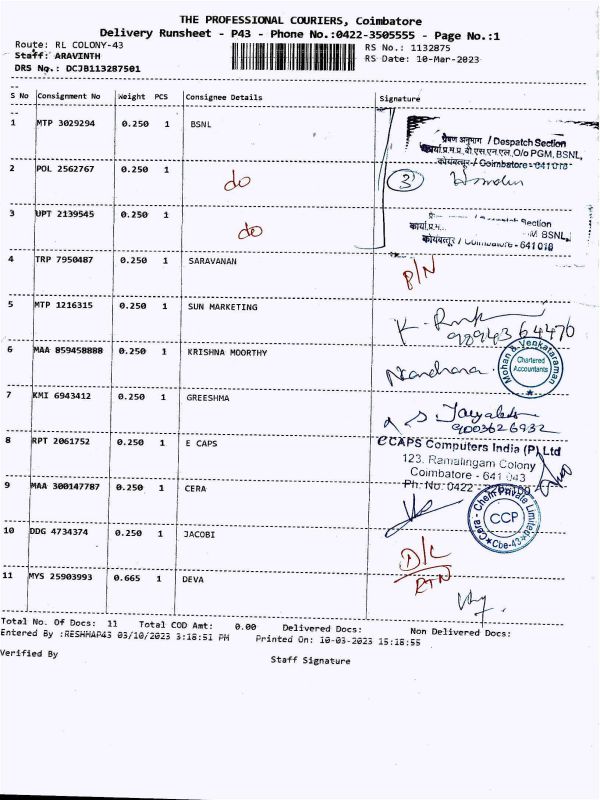 THE PROFESSIONAL COURIERS, Coimbatore
Delivery Runsheet - P43 - Phone No.:0422-3505555 - Page No.:1
Route: RL COLONY-43 RS No.: 1132875
Staff: ARAVINTH RS Date: 10-Mar-2023
DRS No.: DCJB113287501
S No Consignment No Weight PCS Consignee Details Signature
1 MTP 3029294 0.250 1 BSNL
प्रेषण अनुभाग / Despatch Section
कार्या.प्र.म.प्र, बी.एस.एन.एल, O/o PGM, BSNL,
कोयंबत्तूर / Coimbatore - 641 018
2 POL 2562767 0.250 1 do 3
3 UPT 2139545 0.250 1 do
Despatch Section
BSNL,
कोयंबत्तूर / Coimbatore - 641 018
4 TRP 7950487 0.250 1 SARAVANAN P/N
5 MTP 1216315 0.250 1 SUN MARKETING
6 MAA 859458888 0.250 1 KRISHNA MOORTHY
Mohan & Venkataraman
Chartered
Accountants
7 KMI 6943412 0.250 1 GREESHMA
9003626932
8 RPT 2061752 0.250 1 E CAPS
eCAPS Computers India (P) Ltd
123, Ramalingam Colony
Coimbatore - 641 043
Ph: No: 0422
9 MAA 300147787 0.250 1 CERA
Cera - Chem Private Limited
CCP
Cbe-43
10 DDG 4734374 0.250 1 JACOBI D/L
RTN
11 MYS 25903993 0.665 1 DEVA
Total No. Of Docs: 11 Total COD Amt: 0.00 Delivered Docs: Non Delivered Docs:
Entered By :RESHHAP43 03/10/2023 3:18:51 PM Printed On: 10-03-2023 15:18:55
Verified By Staff Signature